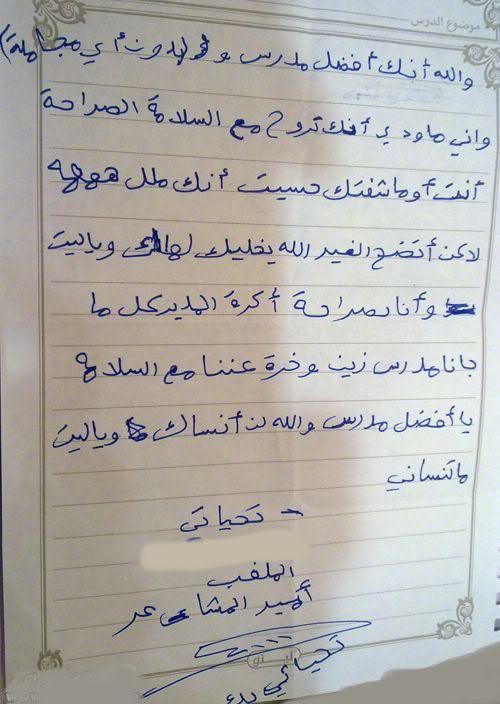 موضوع الدرس
والله أنك أفضل مدرس و بدون أي مجاملة
واني ماودي أنك تروح مع السلامة الصراحة
أنت أو ماشفتك حسيت أنك ملل ههههه
لاكن أتضح الغير الله يخليك لهلك وياليت
وأنا بصراحة أكرة المدير كل ما
جانا مدرس زين وخرة عننا مع السلامة
يا أفضل مدرس والله لن أنساك وياليت
ماتنساني
تحياتي
الملقب
أمير المشاعر